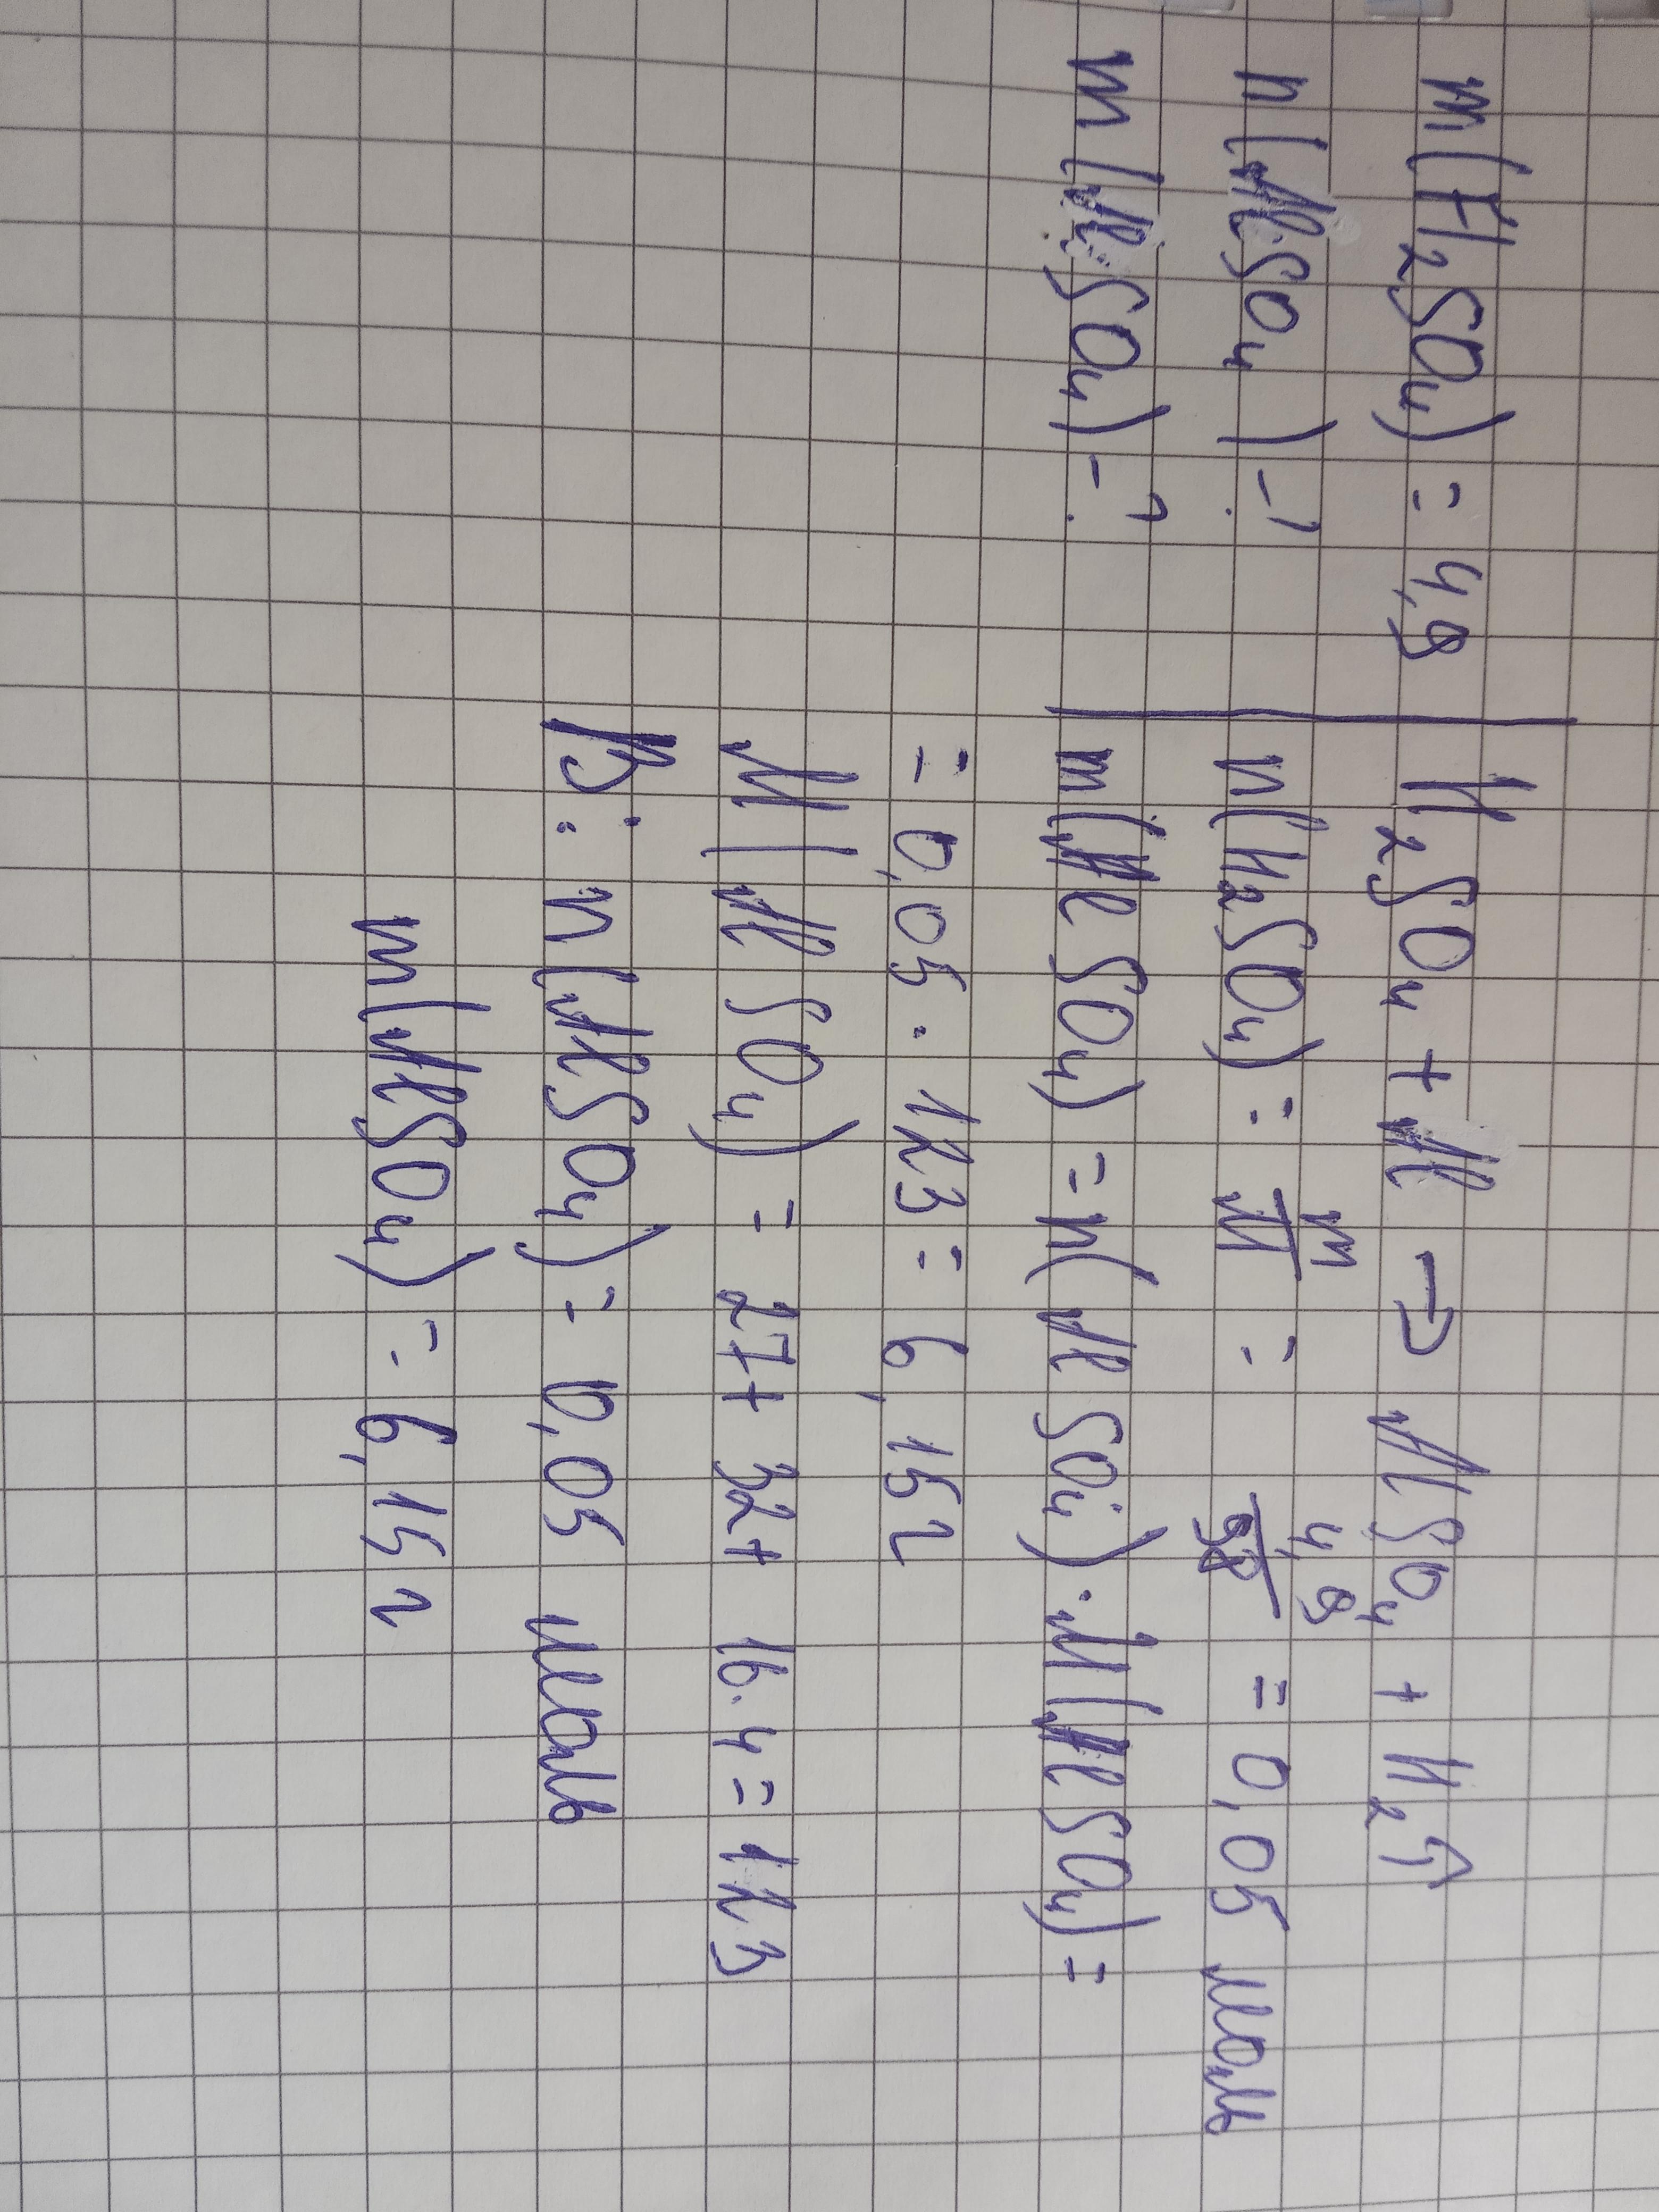 m(H₂SO₄) = 4,9
n(AlSO₄) - ?
m(AlSO₄) - ?
H₂SO₄ + Al → AlSO₄ + H₂↑
n(H₂SO₄) = m/M = 4,9/98 = 0,05 моль
m(AlSO₄) = n(AlSO₄) · M(AlSO₄) =
= 0,05 · 123 = 6,15 г
M(AlSO₄) = 27 + 32 + 16 · 4 = 123
В: n(AlSO₄) = 0,05 моль
m(AlSO₄) = 6,15 г